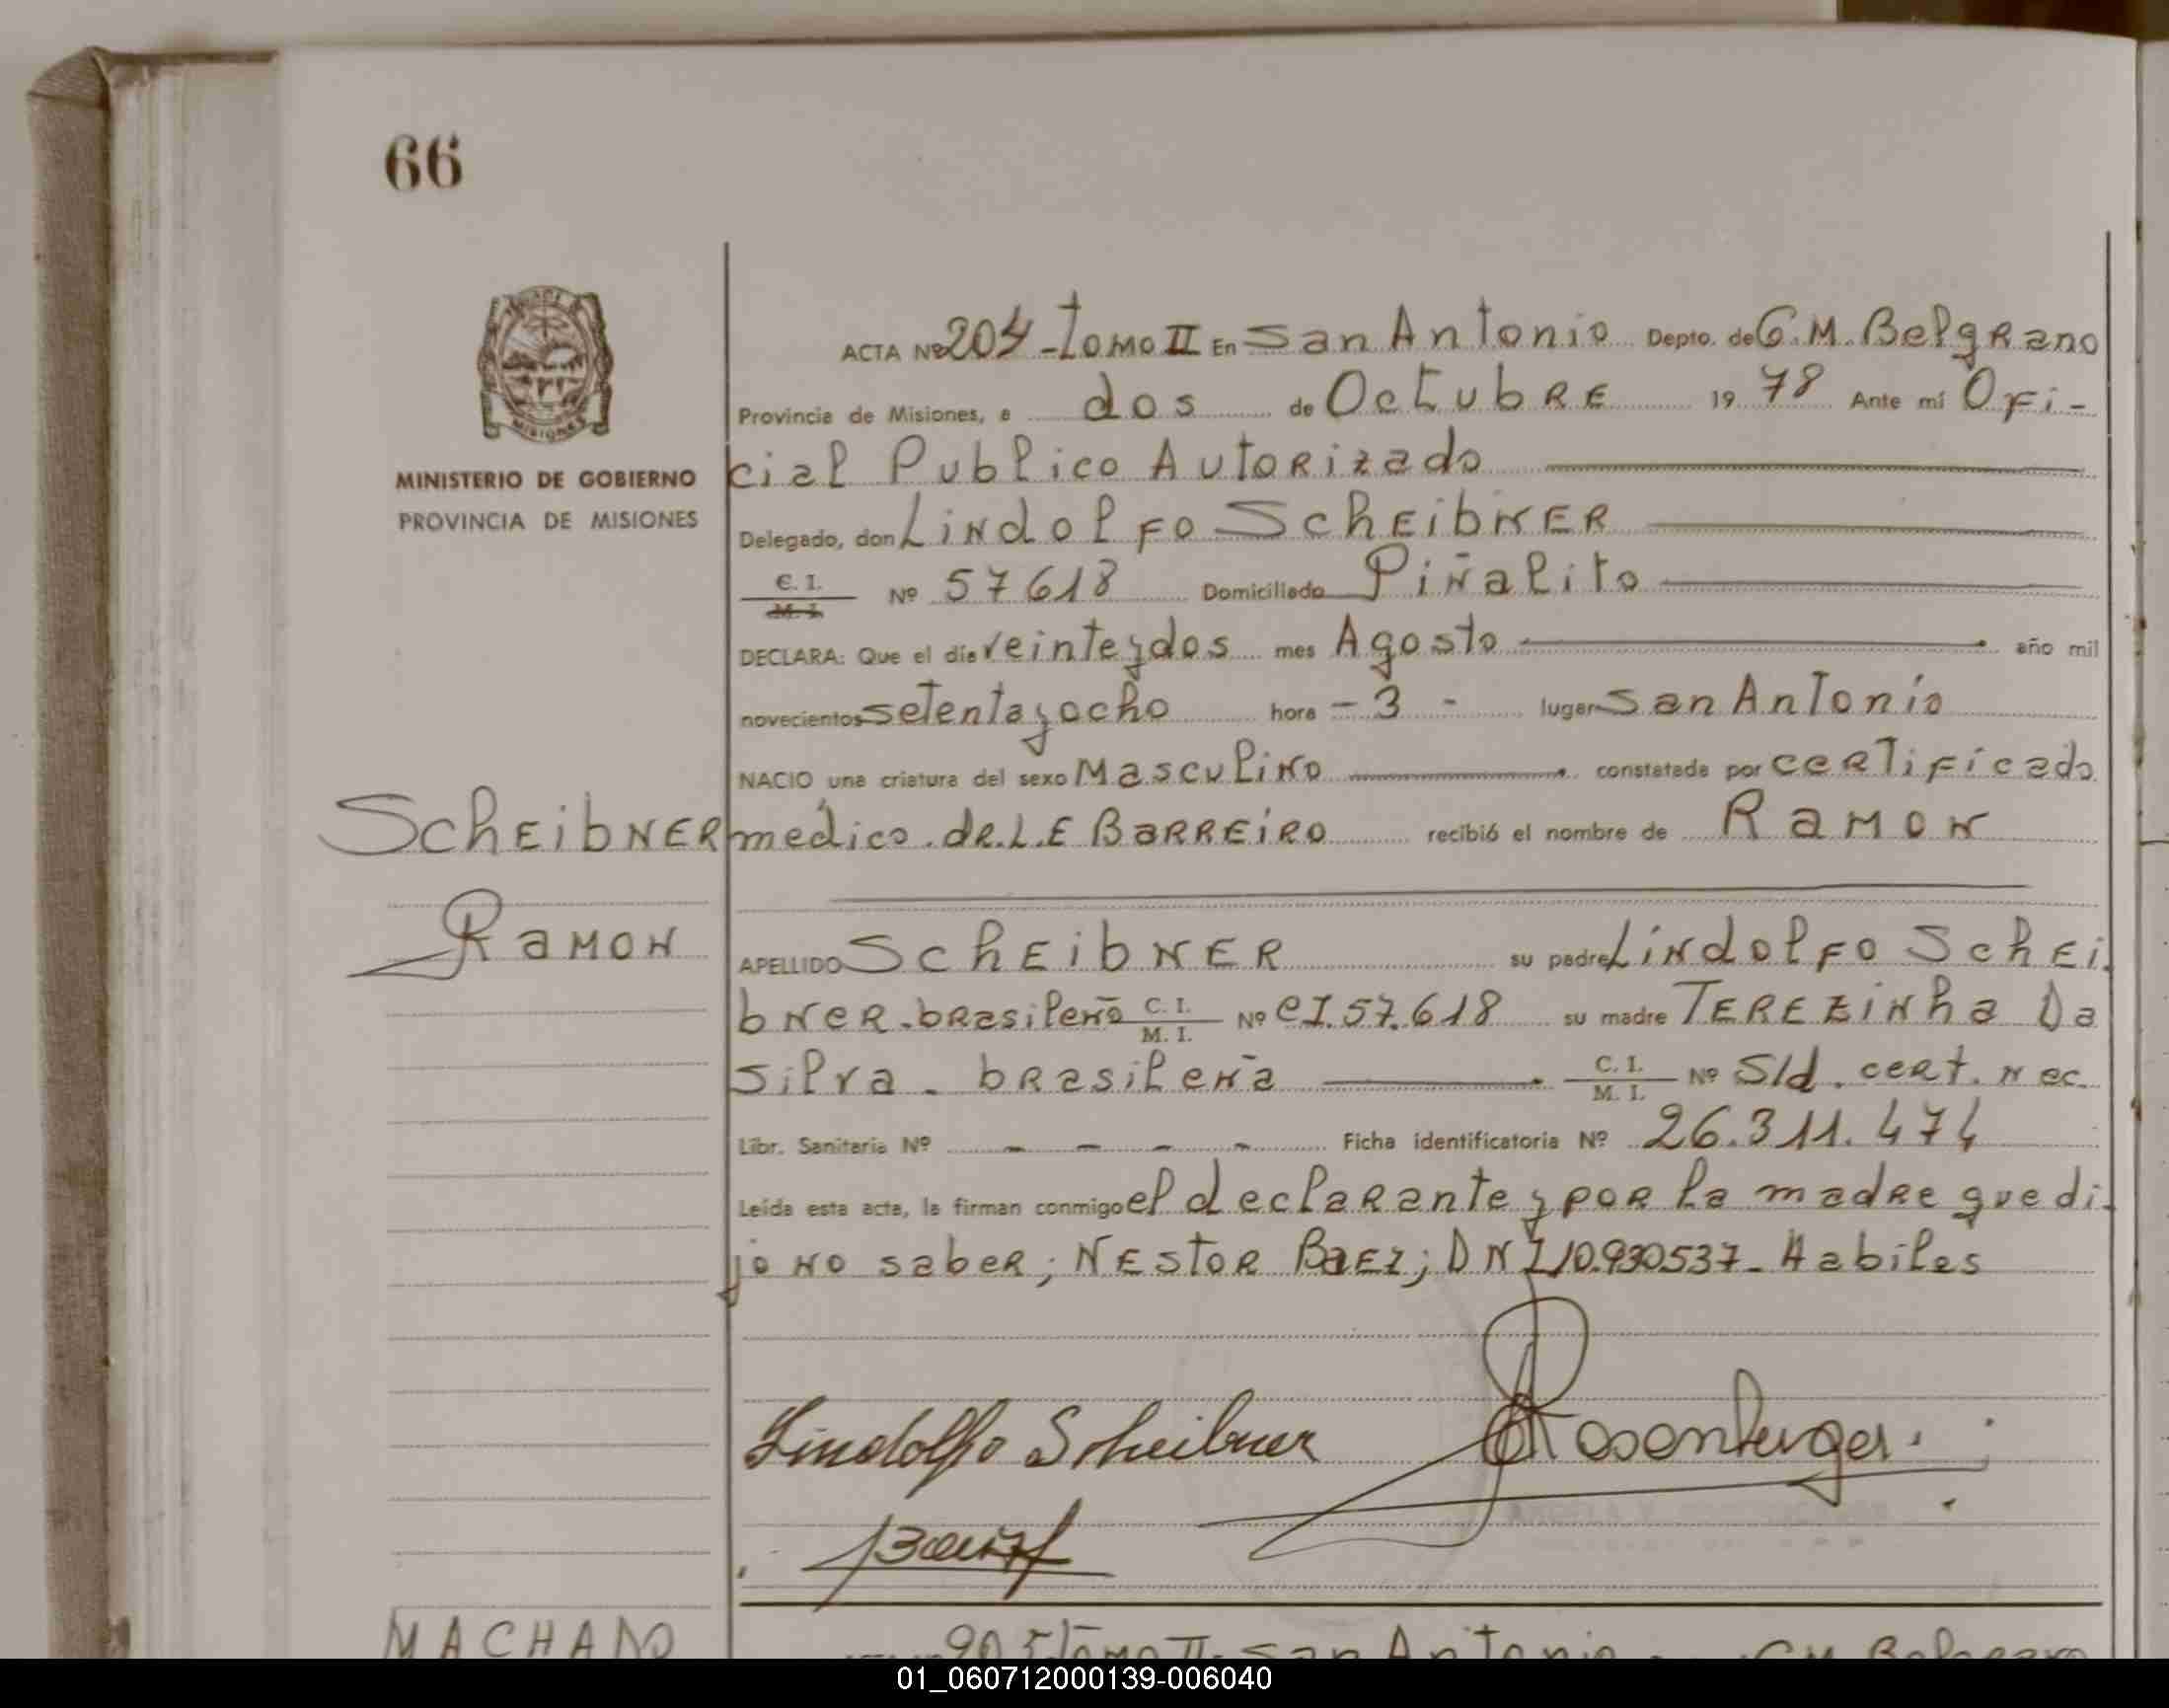 66
MINISTERIO DE GOBIERNO
PROVINCIA DE MISIONES
ACTA Nº 204 - Tomo II En San Antonio Depto. de G. M. Belgrano
Provincia de Misiones, a dos de Octubre 19 78 Ante mí Ofi-
cial Publico Autorizado
Delegado, don Lindolfo Scheibner
C. I. M. I. Nº 57618 Domiciliado Piñalito
DECLARA: Que el día veinteydos mes Agosto año mil
novecientos setentayocho hora - 3 - lugar San Antonio
NACIO una criatura del sexo Masculino constatada por certificado
médico. dr. L. E Barreiro recibió el nombre de Ramon
Scheibner
Ramon
APELLIDO Scheibner su padre Lindolfo Schei-
bner. brasileño C. I. M. I. Nº CI. 57.618 su madre Terezinha Da
Silva. brasileña C. I. M. I. Nº S/d. cert. nec.
Libr. Sanitaria Nº - - - - Ficha identificatoria Nº 26.311.474
Leída esta acta, la firman conmigo el declarante y por la madre que di-
jo no saber; Nestor Baez; DNI 10.930537 - Habiles
Lindolfo Scheibner
Rosenberger
MACHADO
205 Tomo II - San Antonio G. M. Belgrano
01_060712000139-006040